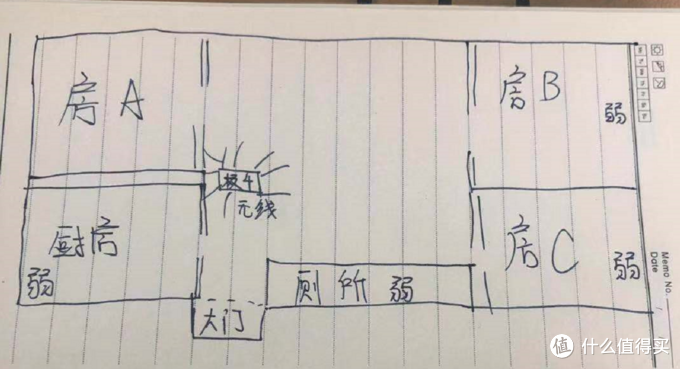 房 A
房 B
弱
极 4
无线
厨房
弱
房 C
弱
厕 所 弱
大门
Memo No.
Date
值 什么值得买